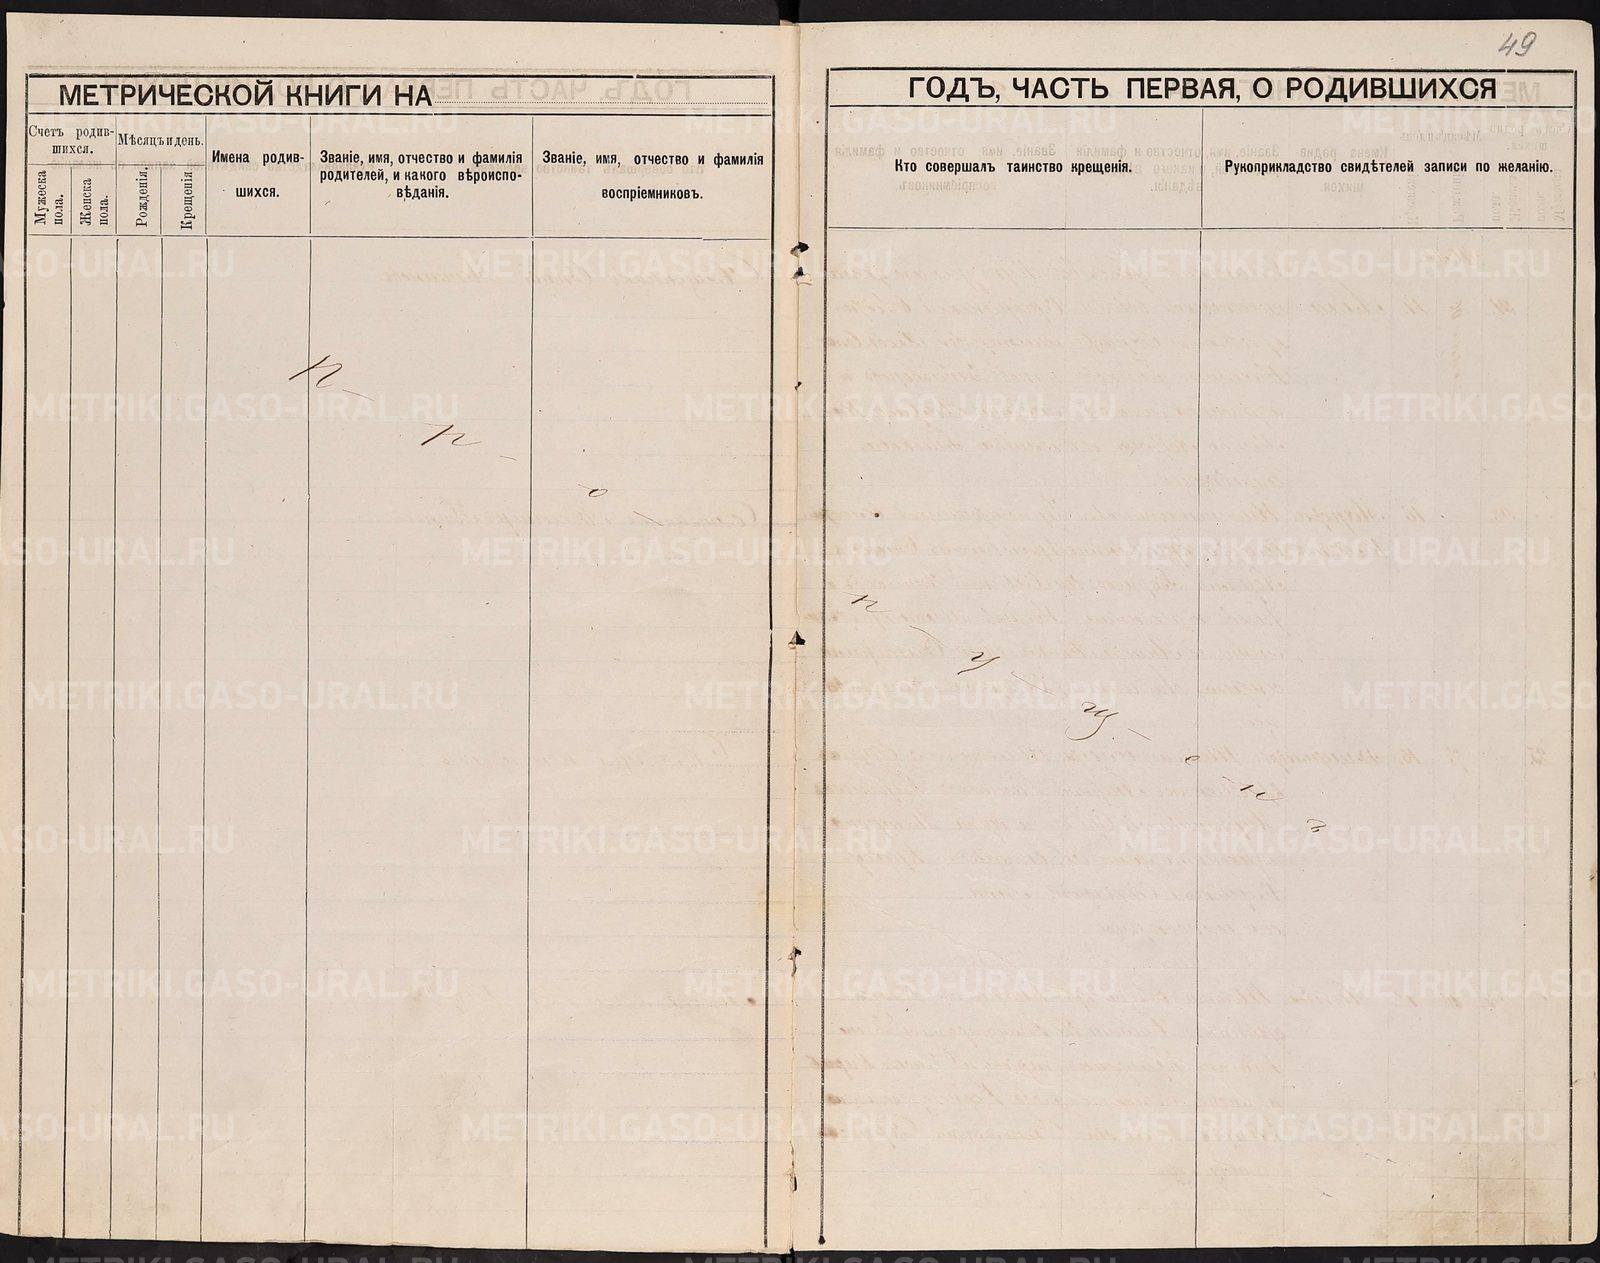 49
МЕТРИЧЕСКОЙ КНИГИ НА
ГОДЪ, ЧАСТЬ ПЕРВАЯ, О РОДИВШИХСЯ
Счетъ родив-
шихся.
Мужеска
пола.
Женска
пола.
Мѣсяцъ и день.
Рожденія.
Крещенія.
Имена родив-
шихся.
Званіе, имя, отчество и фамилія
родителей, и какого вѣроиспо-
вѣданія.
Званіе, имя, отчество и фамилія
воспріемниковъ.
Кто совершалъ таинство крещенія.
Рукоприкладство свидѣтелей записи по желанію.
П - р - о - п - у - щ - е - н - ъ
METRIKI.GASO-URAL.RU